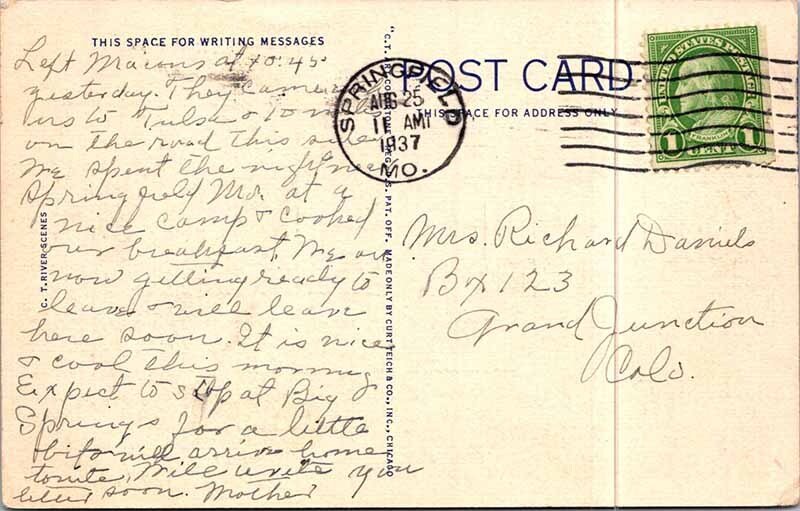 THIS SPACE FOR WRITING MESSAGES
Left Macons at 10:45
yesterday. They came
us to Tulsa & 10 miles
on the road this side
We spent the night near
Springfield Mo. at a
nice camp & cooked
our breakfast. We are
now getting ready to
leave & will leave
here soon. It is nice
& cool this morning
Expect to stop at Big
Springs for a little
will arrive home
tonite, Will write you
letter soon. Mother
C. T. RIVER SCENES
"C.T. REG. U.S. PAT. OFF. MADE ONLY BY CURT TEICH & CO., INC., CHICAGO
POST CARD
THIS SPACE FOR ADDRESS ONLY
SPRINGFIELD
AUG 25
11 AM
1937
MO.
UNITED STATES POSTAGE
FRANKLIN
1 CENT 1
Mrs. Richard Daniels
Bx 123
Grand Junction
Colo.